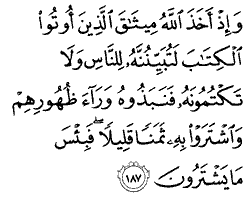 وَإِذْ أَخَذَ ٱللَّهُ مِيثَٰقَ ٱلَّذِينَ أُوتُوا۟
ٱلْكِتَٰبَ لَتُبَيِّنُنَّهُۥ لِلنَّاسِ وَلَا
تَكْتُمُونَهُۥ فَنَبَذُوهُ وَرَآءَ ظُهُورِهِمْ
وَٱشْتَرَوْا۟ بِهِۦ ثَمَنًا قَلِيلًا ۖ فَبِئْسَ
مَا يَشْتَرُونَ ١٨٧